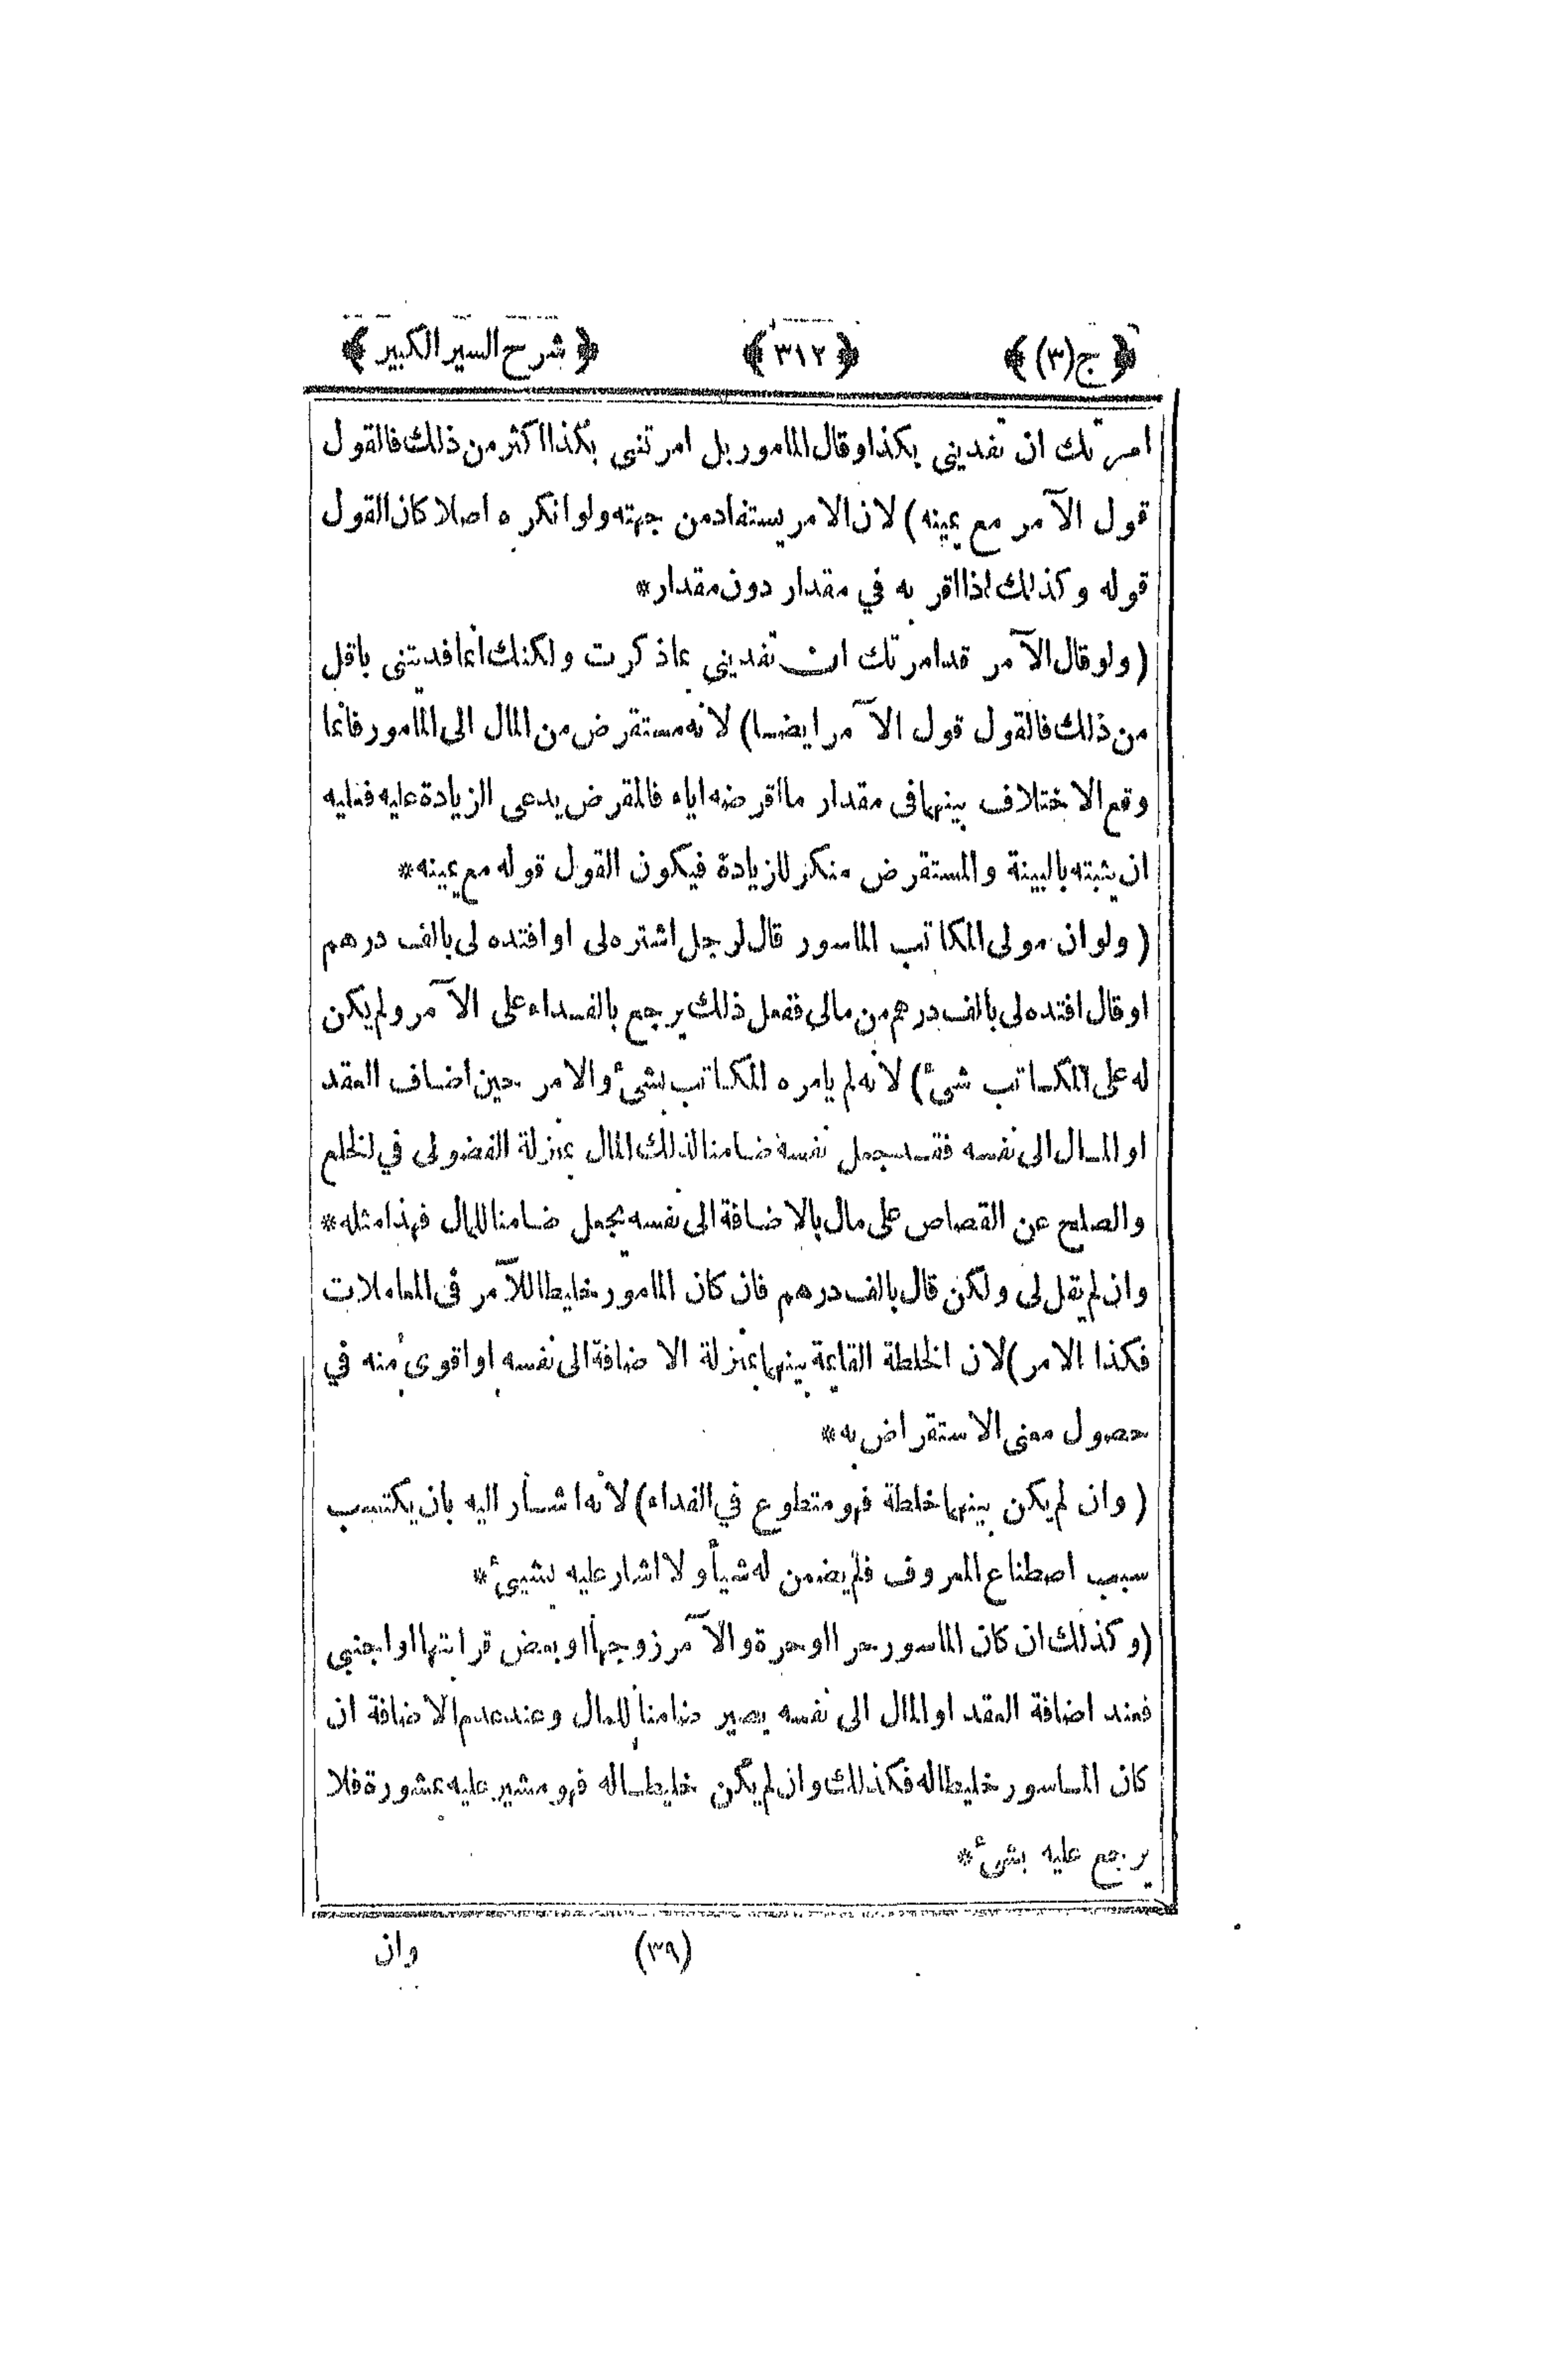 ﴿ ج (٣) ﴾ ﴿ ٣١٢ ﴾ ﴿ شرح السير الكبير ﴾
امرتك ان تفديني بكذا وقال المامور بل امرتني بكذا اكثر من ذلك فالقول
قول الآمر مع يمينه) لان الامر يستفاد من جهته ولو انكره اصلا كان القول
قوله وكذلك اذا اقر به في مقدار دون مقدار*
(ولو قال الآمر قد امرتك ان تفديني بما ذكرت ولكنك انما فديتني باقل
من ذلك فالقول قول الآمر ايضا) لانه مستقرض من المال الى المامور فانما
وقع الاختلاف بينهما في مقدار ما اقرضه اياه فالمقرض يدعى الزيادة عليه فعليه
ان يثبته بالبينة والمستقرض منكر للزيادة فيكون القول قوله مع يمينه*
(ولو ان مولى المكاتب الماسور قال لرجل اشتره لى او افتده لى بالف درهم
او قال افتده لى بالف درهم من مالى ففعل ذلك يرجع بالفداء على الآمر ولم يكن
له على المكاتب شئ) لانه لم يامره المكاتب بشئ والامر حين اضاف العقد
او المال الى نفسه فقد جعل نفسه ضامنا لذلك المال بمنزلة الفضولى في الخلع
والصلح عن القصاص على مال بالاضافة الى نفسه يجعل ضامنا للمال فهذا مثله*
وان لم يقل لى ولكن قال بالف درهم فان كان المامور خليطا للآمر في المعاملات
فكذا الامر) لان الخلطة القائمة بينهما بمنزلة الاضافة الى نفسه او اقوى منه في
حصول معنى الاستقراض به*
(وان لم يكن بينهما خلطة فهو متطوع في الفداء) لانه اشار اليه بان يكتسب
سبب اصطناع المعروف فلم يضمن له شيأ ولا اشار عليه بشيئ*
(وكذلك ان كان الماسور حرا او حرة والآمر زوجها او بعض قرابتها او اجنبى
فعند اضافة العقد او المال الى نفسه يصير ضامنا للمال وعند عدم الاضافة ان
كان الماسور خليطا له فكذلك وان لم يكن خليطا له فهو مشير عليه بمشورة فلا
يرجع عليه بشئ*
(٣٩) وان